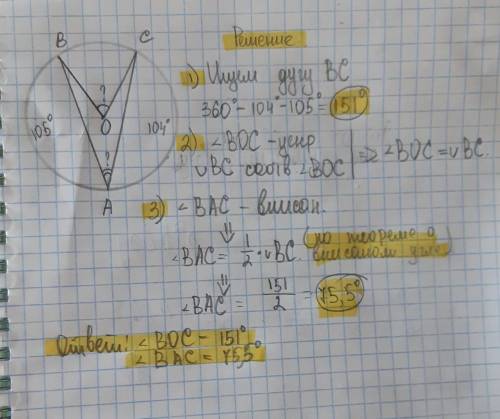 Решение
B C
1) Ищем дугу BC
360° - 104° - 105° = 151°
?
O
105° 104°
2) ∠BOC - центр
∪BC соотв. ∠BOC => ∠BOC = ∪BC.
?
A
3) ∠BAC - вписан.
⇓
∠BAC = 1/2 · ∪BC. (по теореме о
вписаном угле)
⇓
∠BAC = 151/2 = 75,5°
Ответ: ∠BOC - 151°
∠BAC = 75,5°